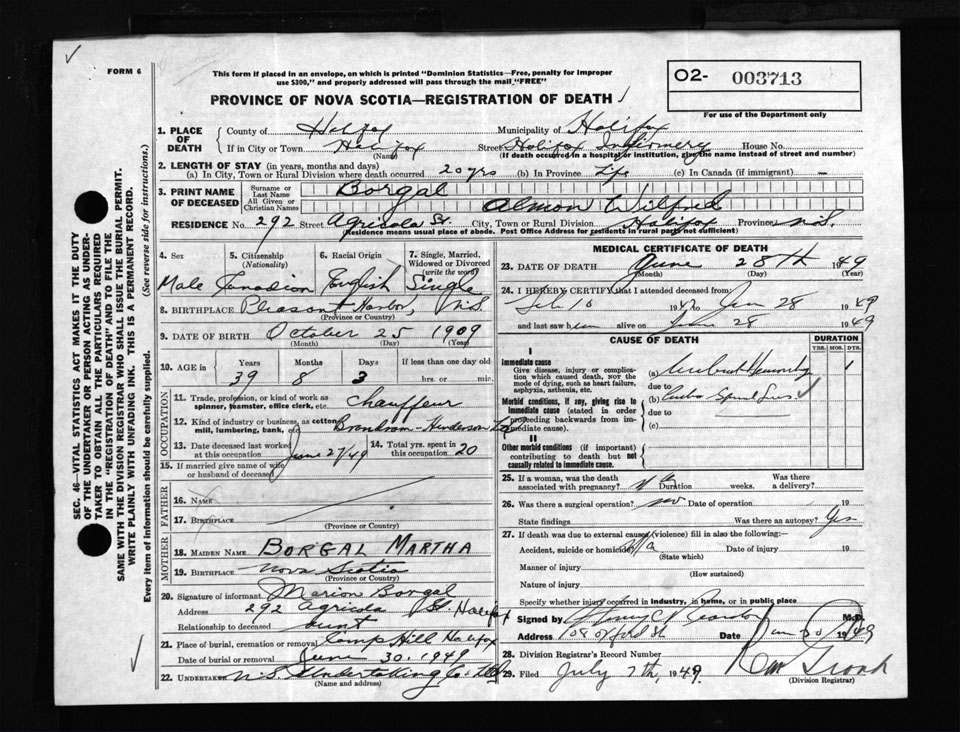 FORM 6
This form if placed in an envelope, on which is printed "Dominion Statistics—Free, penalty for improper
use $300," and properly addressed will pass through the mail "FREE"
O2- 003713
For use of the Department only
PROVINCE OF NOVA SCOTIA—REGISTRATION OF DEATH
1. PLACE OF DEATH
County of Halifax Municipality of Halifax
If in City or Town Halifax Street Halifax Infirmary House No.
(Name) (If death occurred in a hospital or institution, give the name instead of street and number)
2. LENGTH OF STAY (in years, months and days)
(a) In City, Town or Rural Division where death occurred 20 yrs (b) In Province Life (c) In Canada (if immigrant) —
3. PRINT NAME OF DECEASED
Surname or Last Name Borgal
All Given or Christian Names Almon Wilfred
RESIDENCE No. 292 Street Agricola St. City, Town or Rural Division Halifax Province N.S.
(Residence means usual place of abode. Post Office Address for residents in rural parts not sufficient)
4. Sex Male
5. Citizenship (Nationality) Canadian
6. Racial Origin English
7. Single, Married, Widowed or Divorced (write the word) Single
8. BIRTHPLACE Pleasant Harbor, N.S.
(Province or Country)
9. DATE OF BIRTH October 25 1909
(Month) (Day) (Year)
10. AGE in Years 39 Months 8 Days 3 If less than one day old
hrs. or min.
OCCUPATION
11. Trade, profession, or kind of work as spinner, teamster, office clerk, etc. Chauffeur
12. Kind of industry or business, as cotton mill, lumbering, bank, etc.
13. Date deceased last worked at this occupation June 27/49
14. Total yrs. spent in this occupation 20
15. If married give name of wife or husband of deceased
FATHER
16. NAME
17. BIRTHPLACE
(Province or Country)
MOTHER
18. MAIDEN NAME BORGAL MARTHA
19. BIRTHPLACE Nova Scotia
(Province or Country)
20. Signature of informant Marion Borgal
Address 292 Agricola St. Halifax
Relationship to deceased aunt
21. Place of burial, cremation or removal Camp Hill Halifax
Date of burial or removal June 30, 1949
22. Undertaker N.S. Undertaking Co. Ltd
(Name and address)
MEDICAL CERTIFICATE OF DEATH
23. DATE OF DEATH June 28th 1949
(Month) (Day) (Year)
24. I HEREBY CERTIFY that I attended deceased from:
Feb 10 19 to Jun 28 1949
and last saw him alive on June 28 1949
CAUSE OF DEATH
DURATION
YRS. MOS. DYS.
I
Immediate cause
Give disease, injury or complication which caused death, NOT the mode of dying, such as heart failure, asphyxia, asthenia, etc.
(a) 1
due to
Morbid conditions, if any, giving rise to immediate cause (stated in order proceeding backwards from immediate cause).
(b)
due to
(c)
II
Other morbid conditions (if important) contributing to death but not causally related to immediate cause.
25. If a woman, was the death associated with pregnancy? Duration weeks. Was there a delivery?
26. Was there a surgical operation? no Date of operation 19
State findings Was there an autopsy? Yes
27. If death was due to external causes (violence) fill in also the following:
Accident, suicide or homicide? Date of injury 19
(State which)
Manner of injury
(How sustained)
Nature of injury
Specify whether injury occurred in industry, in home, or in public place
Signed by M.D.
Address Date 1949
28. Division Registrar's Record Number
29. Filed July 7th, 1949
(Division Registrar)
SEC. 46—VITAL STATISTICS ACT MAKES IT THE DUTY
OF THE UNDERTAKER OR PERSON ACTING AS UNDER-
TAKER TO OBTAIN ALL THE PARTICULARS REQUIRED
IN THE "REGISTRATION OF DEATH" AND TO FILE THE
SAME WITH THE DIVISION REGISTRAR WHO SHALL ISSUE THE BURIAL PERMIT.
WRITE PLAINLY WITH UNFADING INK. THIS IS A PERMANENT RECORD.
Every item of information should be carefully supplied. (See reverse side for instructions.)